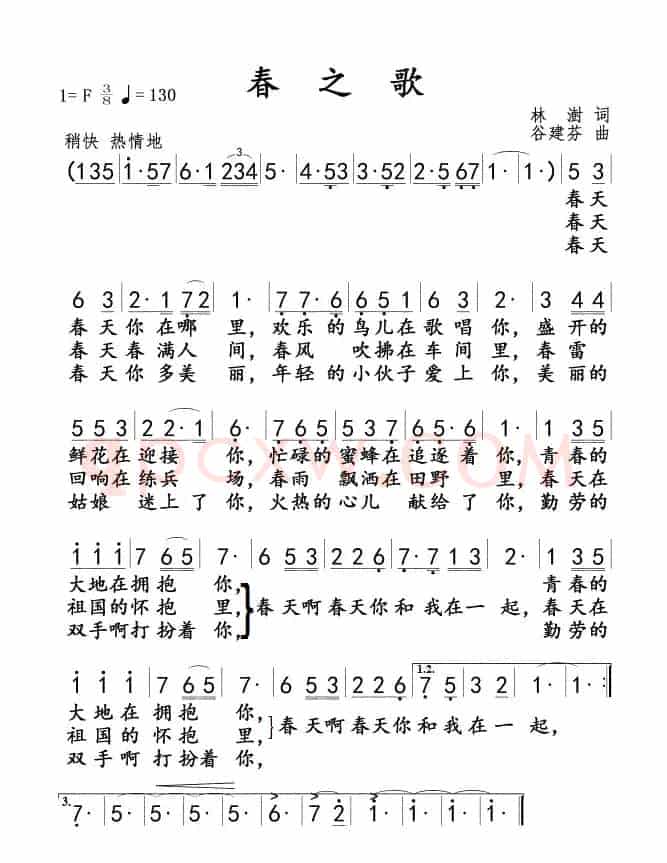 春 之 歌
1= F 3/8 ♩= 130
林 澍 词
谷建芬 曲
稍快 热情地
(135 i·57 6·1 234 5· 4·53 3·52 2·5 67 1· 1·) 5 3
春 天
春 天
春 天
6 3 2·1 72 1· 77·6 651 6 3 2· 3 44
春 天 你 在 哪 里, 欢 乐 的 鸟 儿 在 歌 唱 你, 盛 开 的
春 天 春 满 人 间, 春 风 吹 拂 在 车 间 里, 春 雷
春 天 你 多 美 丽, 年 轻 的 小 伙 子 爱 上 你, 美 丽 的
553 3 2 22·1 6· 7·65 537 6·65 1· 1 35
鲜 花 在 迎 接 你, 忙 碌 的 蜜 蜂 在 追 逐 着 你, 青 春 的
回 响 在 练 兵 场, 春 雨 飘 洒 在 田 野 里, 春 天 在
姑 娘 迷 上 了 你, 火 热 的 心 儿 献 给 了 你, 勤 劳 的
i i i 7 65 7· 6 53 226 7·71 13 2· 1 35
大 地 在 拥 抱 你, 青 春 的
祖 国 的 怀 抱 里, 春 天 啊 春 天 你 和 我 在 一 起, 春 天 在
双 手 啊 打 扮 着 你, 勤 劳 的
i i i 7 65 7· 6 53 226 1.2. 7 5 3 2 1· 1· :
大 地 在 拥 抱 你,
祖 国 的 怀 抱 里, 春 天 啊 春 天 你 和 我 在 一 起,
双 手 啊 打 扮 着 你,
3. 7· 5· 5· 5· 5· 6· 7 2 i· i· i· i·
QPCXW.COM